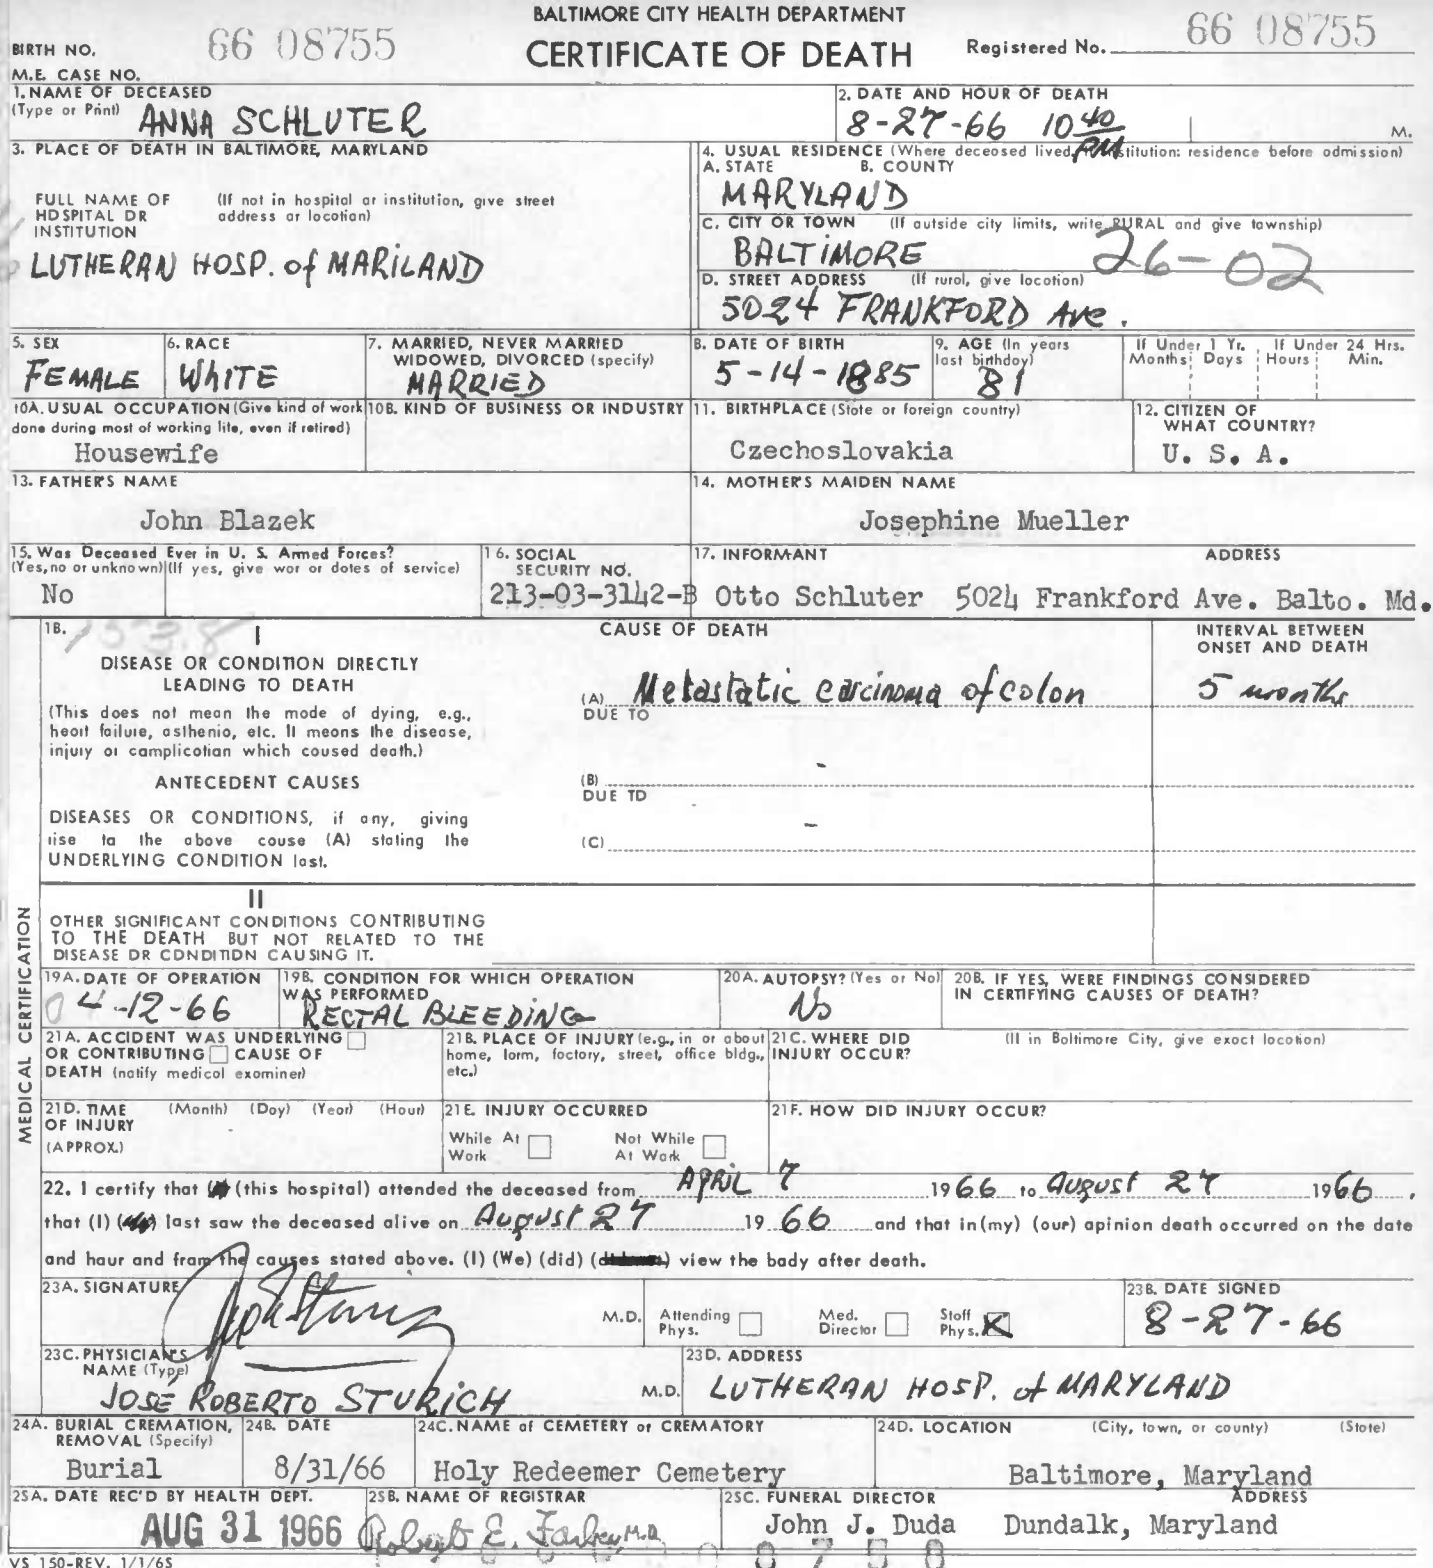 BALTIMORE CITY HEALTH DEPARTMENT
CERTIFICATE OF DEATH
BIRTH NO. 66 08755
Registered No. 66 08755
M.E. CASE NO.
1. NAME OF DECEASED (Type or Print) ANNA SCHLUTER
2. DATE AND HOUR OF DEATH
8-27-66 10 40 PM M.
3. PLACE OF DEATH IN BALTIMORE, MARYLAND
FULL NAME OF HOSPITAL OR INSTITUTION (If not in hospital or institution, give street address or location)
LUTHERAN HOSP. of MARILAND
4. USUAL RESIDENCE (Where deceased lived. If institution: residence before admission)
A. STATE B. COUNTY
MARYLAND
C. CITY OR TOWN (If outside city limits, write RURAL and give township)
BALTIMORE 26-02
D. STREET ADDRESS (If rural, give location)
5024 FRANKFORD Ave.
5. SEX
FEMALE
6. RACE
WHITE
7. MARRIED, NEVER MARRIED WIDOWED, DIVORCED (specify)
MARRIED
8. DATE OF BIRTH
5-14-1885
9. AGE (In years last birthday)
81
If Under 1 Yr. Months Days
If Under 24 Hrs. Hours Min.
10A. USUAL OCCUPATION (Give kind of work done during most of working life, even if retired)
Housewife
10B. KIND OF BUSINESS OR INDUSTRY
11. BIRTHPLACE (State or foreign country)
Czechoslovakia
12. CITIZEN OF WHAT COUNTRY?
U. S. A.
13. FATHER'S NAME
John Blazek
14. MOTHER'S MAIDEN NAME
Josephine Mueller
15. Was Deceased Ever in U. S. Armed Forces?
(Yes, no or unknown) (If yes, give war or dates of service)
No
16. SOCIAL SECURITY NO.
213-03-3142-B
17. INFORMANT ADDRESS
Otto Schluter 5024 Frankford Ave. Balto. Md.
18. 153.8
I
CAUSE OF DEATH
INTERVAL BETWEEN ONSET AND DEATH
DISEASE OR CONDITION DIRECTLY
LEADING TO DEATH
(This does not mean the mode of dying, e.g.,
heart failure, asthenia, etc. It means the disease,
injury or complication which caused death.)
(A) Metastatic carcinoma of colon 5 months
DUE TO
ANTECEDENT CAUSES
(B)
DUE TO
DISEASES OR CONDITIONS, if any, giving
rise to the above cause (A) stating the
UNDERLYING CONDITION last.
(C)
II
OTHER SIGNIFICANT CONDITIONS CONTRIBUTING
TO THE DEATH BUT NOT RELATED TO THE
DISEASE OR CONDITION CAUSING IT.
MEDICAL CERTIFICATION
19A. DATE OF OPERATION
4-12-66
19B. CONDITION FOR WHICH OPERATION WAS PERFORMED
RECTAL BLEEDING
20A. AUTOPSY? (Yes or No)
No
20B. IF YES, WERE FINDINGS CONSIDERED IN CERTIFYING CAUSES OF DEATH?
21A. ACCIDENT WAS UNDERLYING
OR CONTRIBUTING CAUSE OF
DEATH (notify medical examiner)
21B. PLACE OF INJURY (e.g., in or about home, farm, factory, street, office bldg., etc.)
21C. WHERE DID INJURY OCCUR? (If in Baltimore City, give exact location)
21D. TIME OF INJURY (APPROX.) (Month) (Day) (Year) (Hour)
21E. INJURY OCCURRED
While At Work Not While At Work
21F. HOW DID INJURY OCCUR?
22. I certify that (this hospital) attended the deceased from APRIL 7 1966 to August 27 1966,
that (I) last saw the deceased alive on August 27 1966 and that in (my) (our) opinion death occurred on the date
and hour and from the causes stated above. (I) (We) (did) view the body after death.
23A. SIGNATURE
M.D. Attending Phys. Med. Director Staff Phys. X
23B. DATE SIGNED
8-27-66
23C. PHYSICIAN'S NAME (Type)
JOSÉ ROBERTO STURICH M.D.
23D. ADDRESS
LUTHERAN HOSP. of MARYLAND
24A. BURIAL CREMATION, REMOVAL (Specify)
Burial
24B. DATE
8/31/66
24C. NAME of CEMETERY or CREMATORY
Holy Redeemer Cemetery
24D. LOCATION (City, town, or county) (State)
Baltimore, Maryland
25A. DATE REC'D BY HEALTH DEPT.
AUG 31 1966
25B. NAME OF REGISTRAR
Robert E. Farber, M.D.
25C. FUNERAL DIRECTOR ADDRESS
John J. Duda Dundalk, Maryland
VS 150-REV. 1/1/65